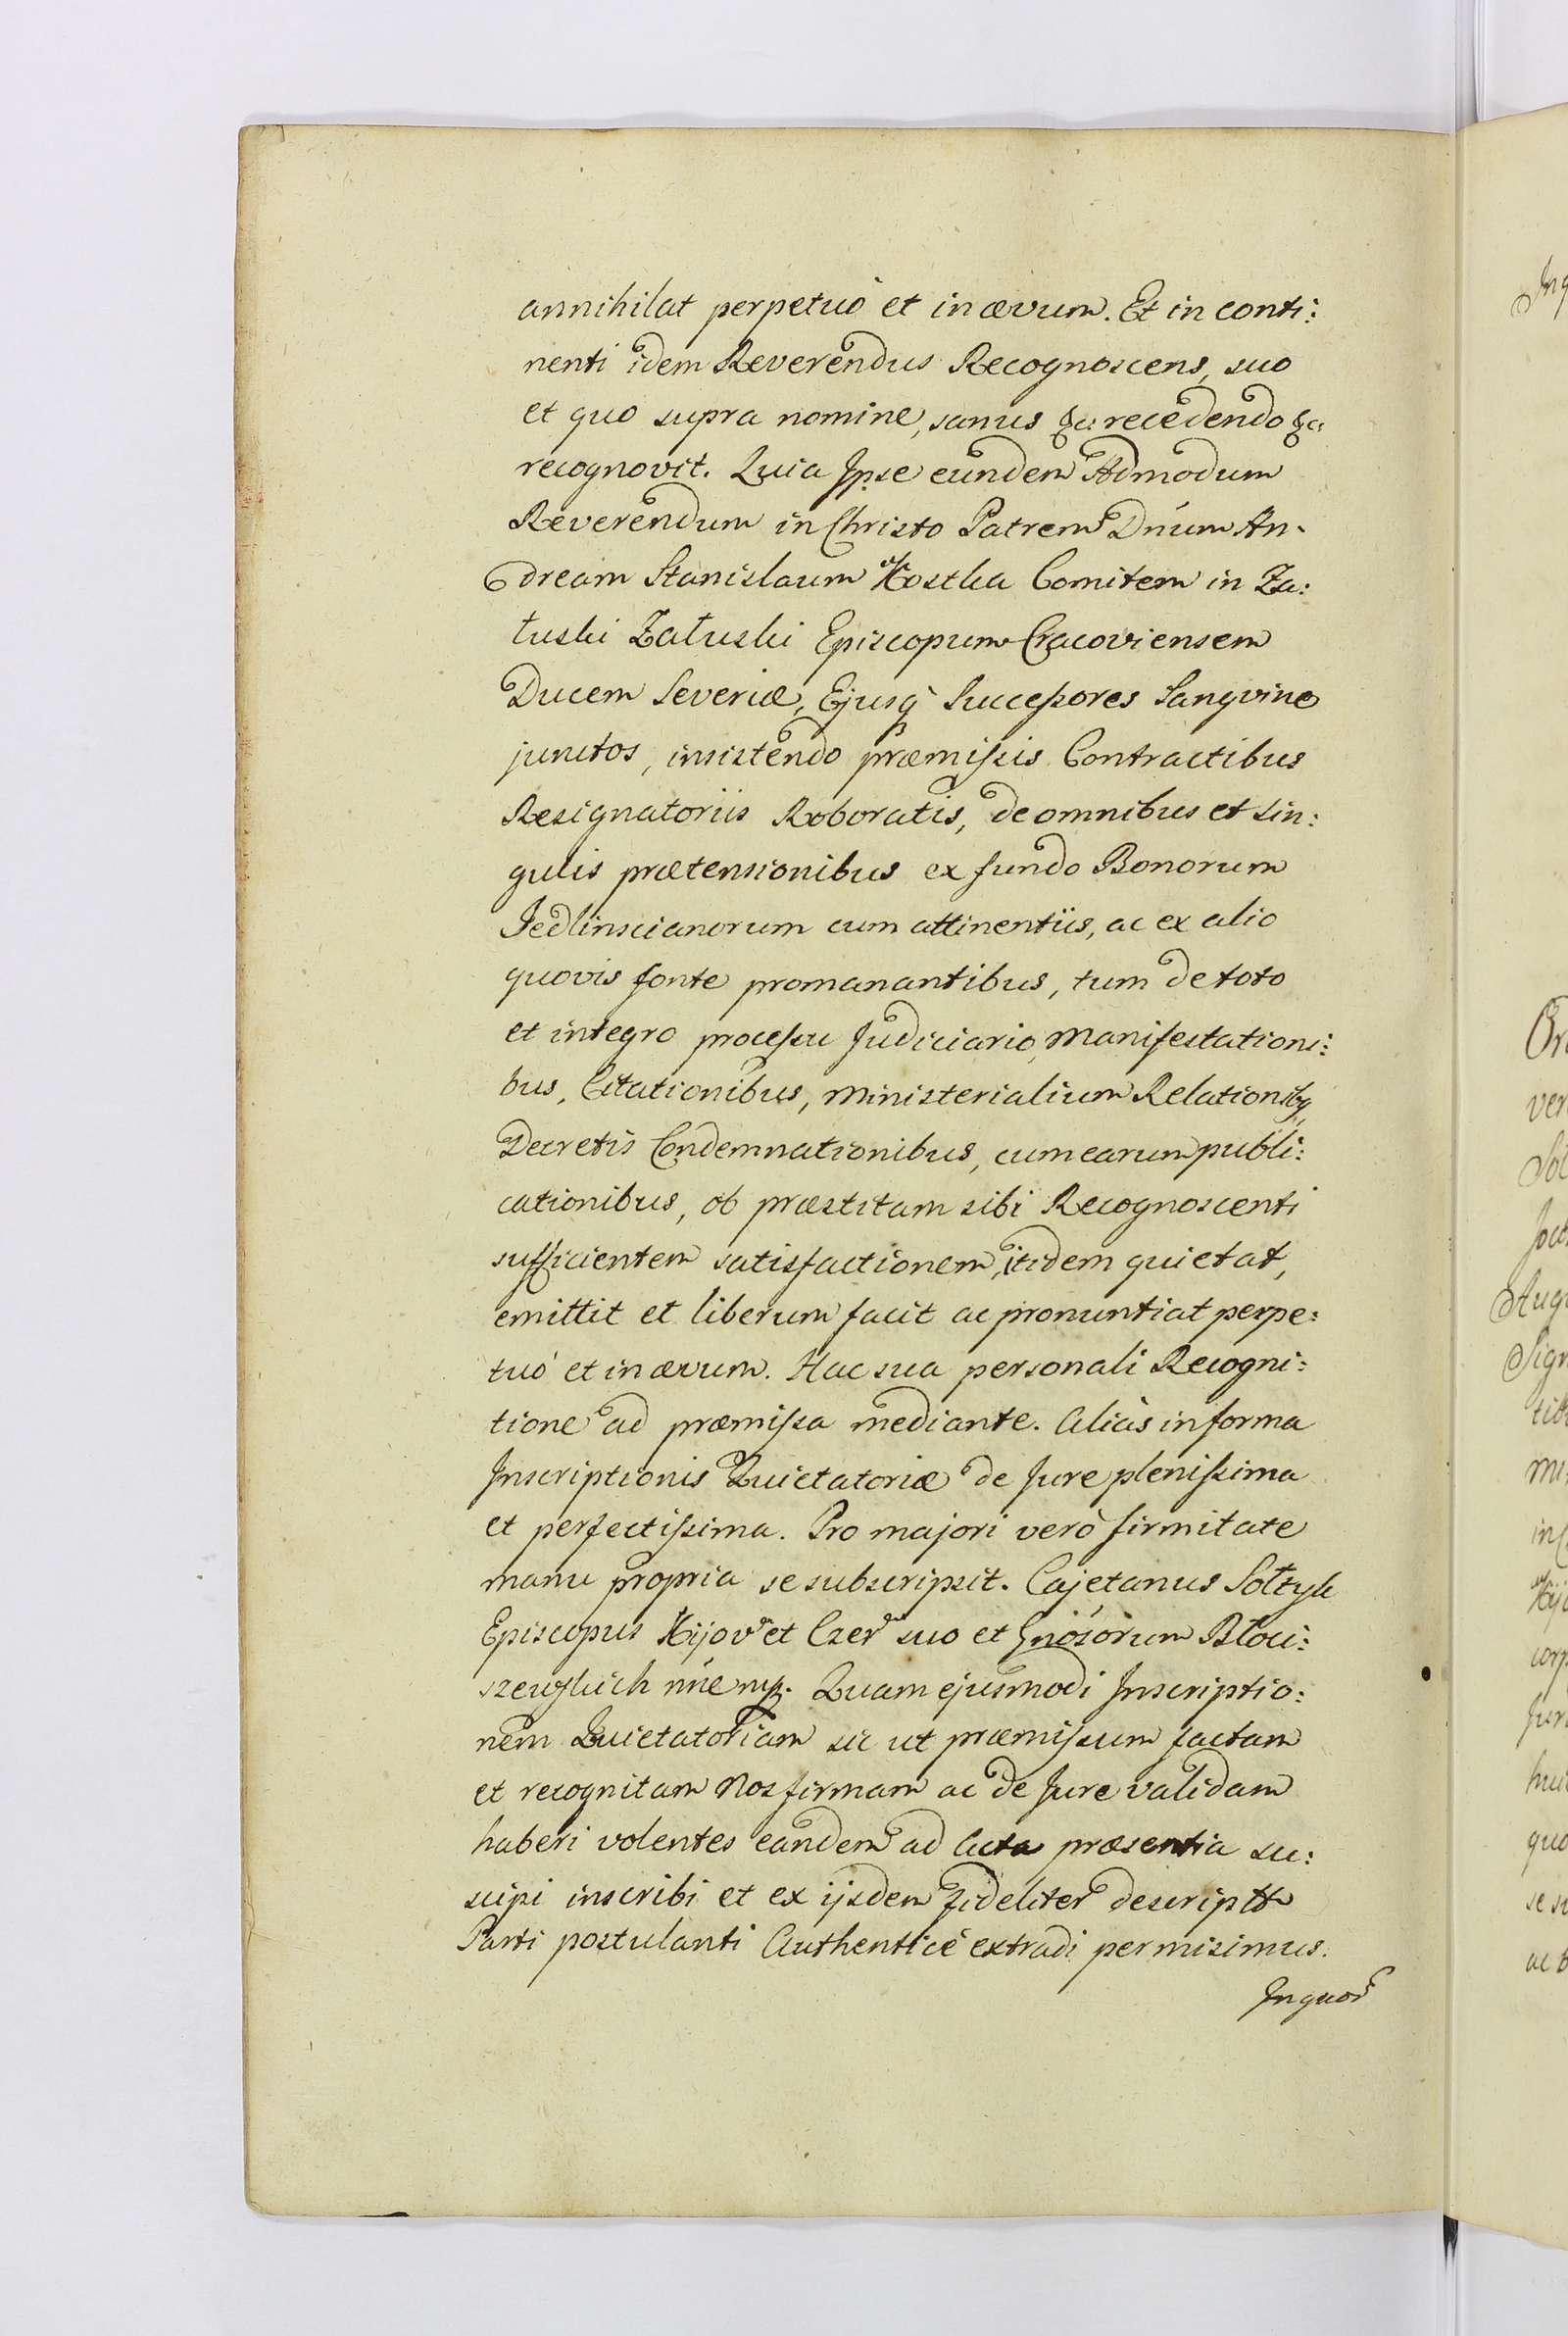 annihilat perpetuò et in ævum. Et in conti:
nenti idem Reverendus Recognoscens, suo
et quo supra nomine, sanus &c: recedendo &c:
recognovit. Quia Ipse eundem Admodum
Reverendum in Christo Patrem Dnum An-
dream Stanislaum Kostka Comitem in Za:
łuski Załuski Episcopum Cracoviensem
Ducem Severiæ, Ejusq̀ Succeſsores Sangvine
junctos, insistendo præmiſsis Contractibus
Resignatoriis Roboratis, de omnibus et sin:
gulis prætensionibus ex fundo Bonorum
Jedlinscianorum cum attinentiis, ac ex alio
quovis fonte promanantibus, tum de toto
et integro proceſsu Judiciario, Manifestationi:
bus, Citationibus, Ministerialium Relationibq,
Decretis Condemnationibus, cum earum publi:
cationibus, ob præstitam sibi Recognoscenti
sufficientem satisfactionem, itidem quietat,
emittit et liberum facit ac pronuntiat perpe:
tuò et in ævum. Hac sua personali Recogni:
tione ad præmiſsa mediante. Aliàs in forma
Inscriptionis Quietatoriæ de Jure pleniſsima
et perfectiſsima. Pro majori verò firmitate
manu propria se subscripsit. Cajetanus Sołtyk
Episcopus Kijov et Czer suo et Gnosorum Błoci:
szewskich nne mp. Quam ejusmodi Inscriptio:
nem Quietatoriam sic ut præmiſsum factam
et recognitam Nos firmam ac de Jure validam
haberi volentes eandem ad Acta præsentia su:
scipi inscribi et ex ijsdem fideliter descriptt
Parti postulanti Authenticè extradi permisimus.
In quor